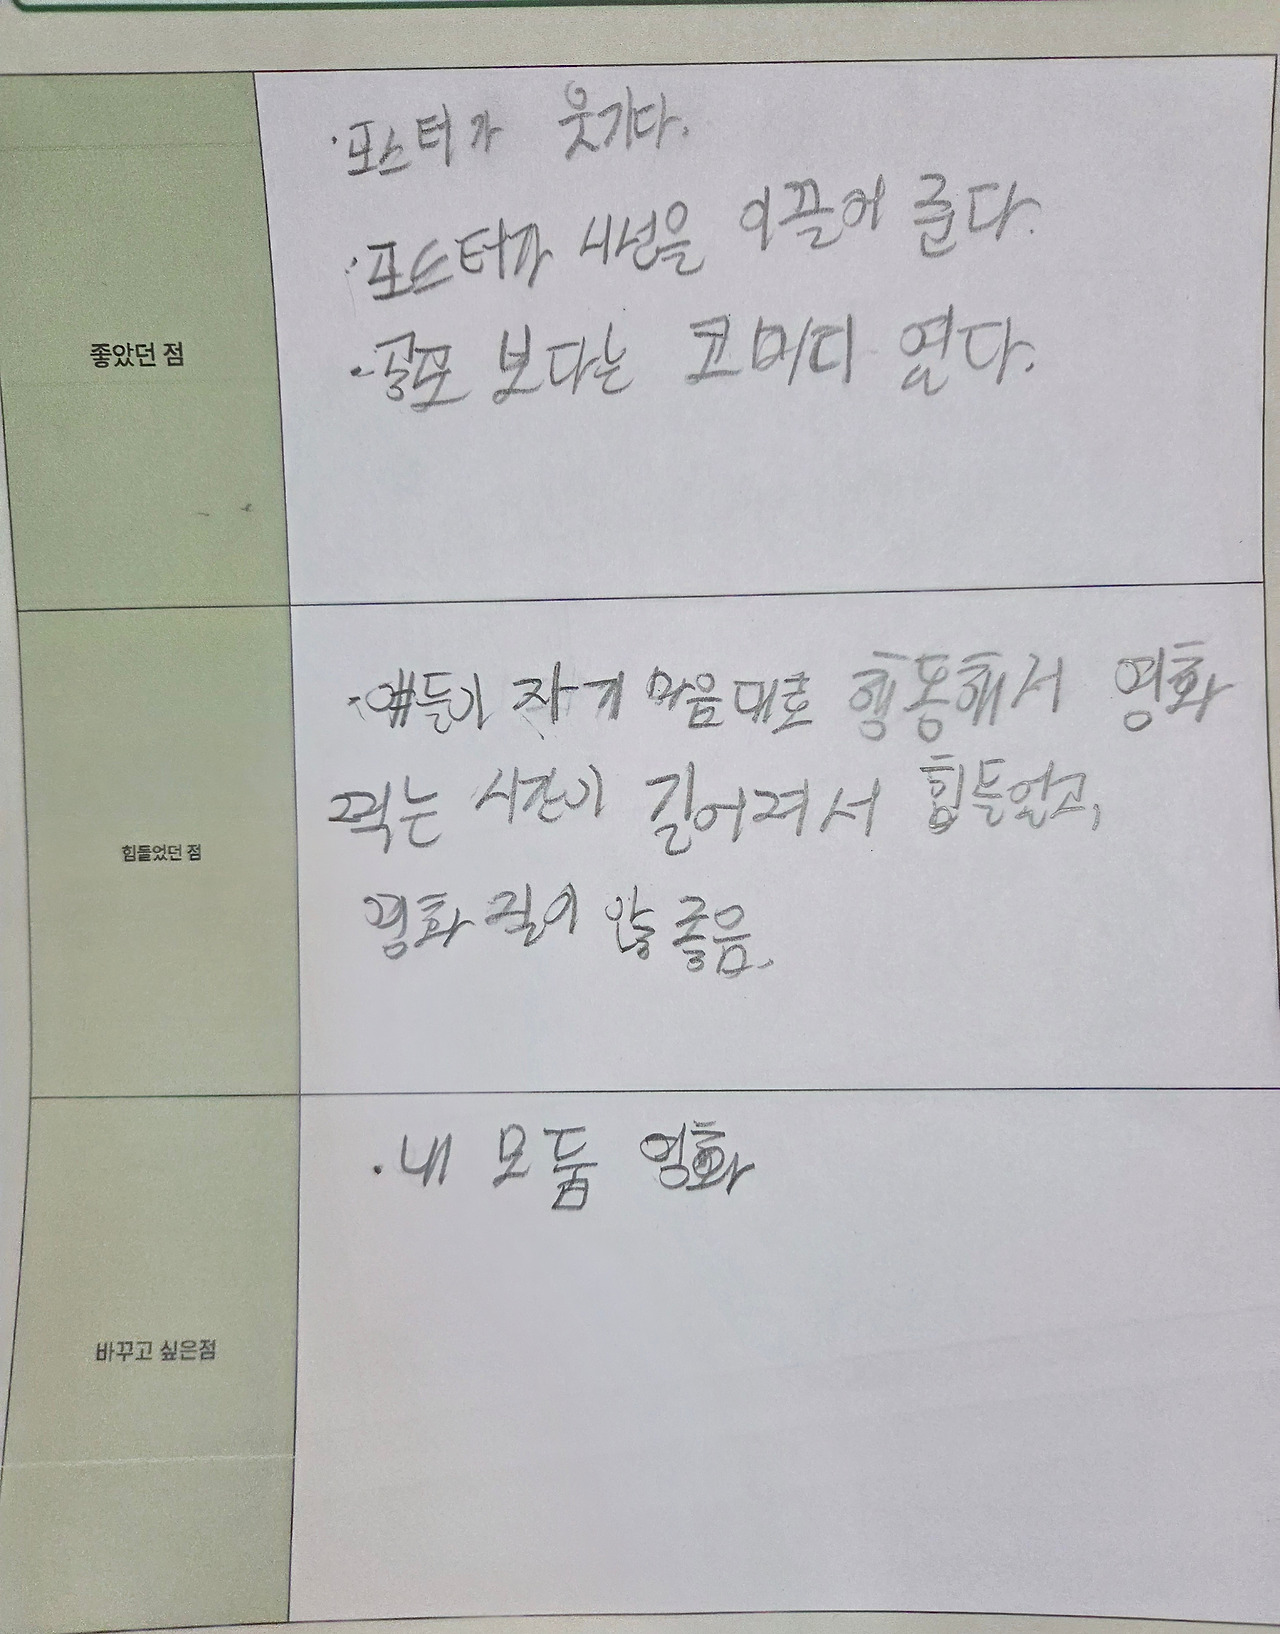 ·포스터가 웃기다.
·포스터가 시선을 이끌어 준다.
·공포 보다는 코미디 였다.
좋았던 점
·얘들이 자기 마음대로 행동해서 영화
찍는 시간이 길어져서 힘들었고,
영화 질이 않 좋음.
힘들었던 점
·내 모둠 영화
바꾸고 싶은점